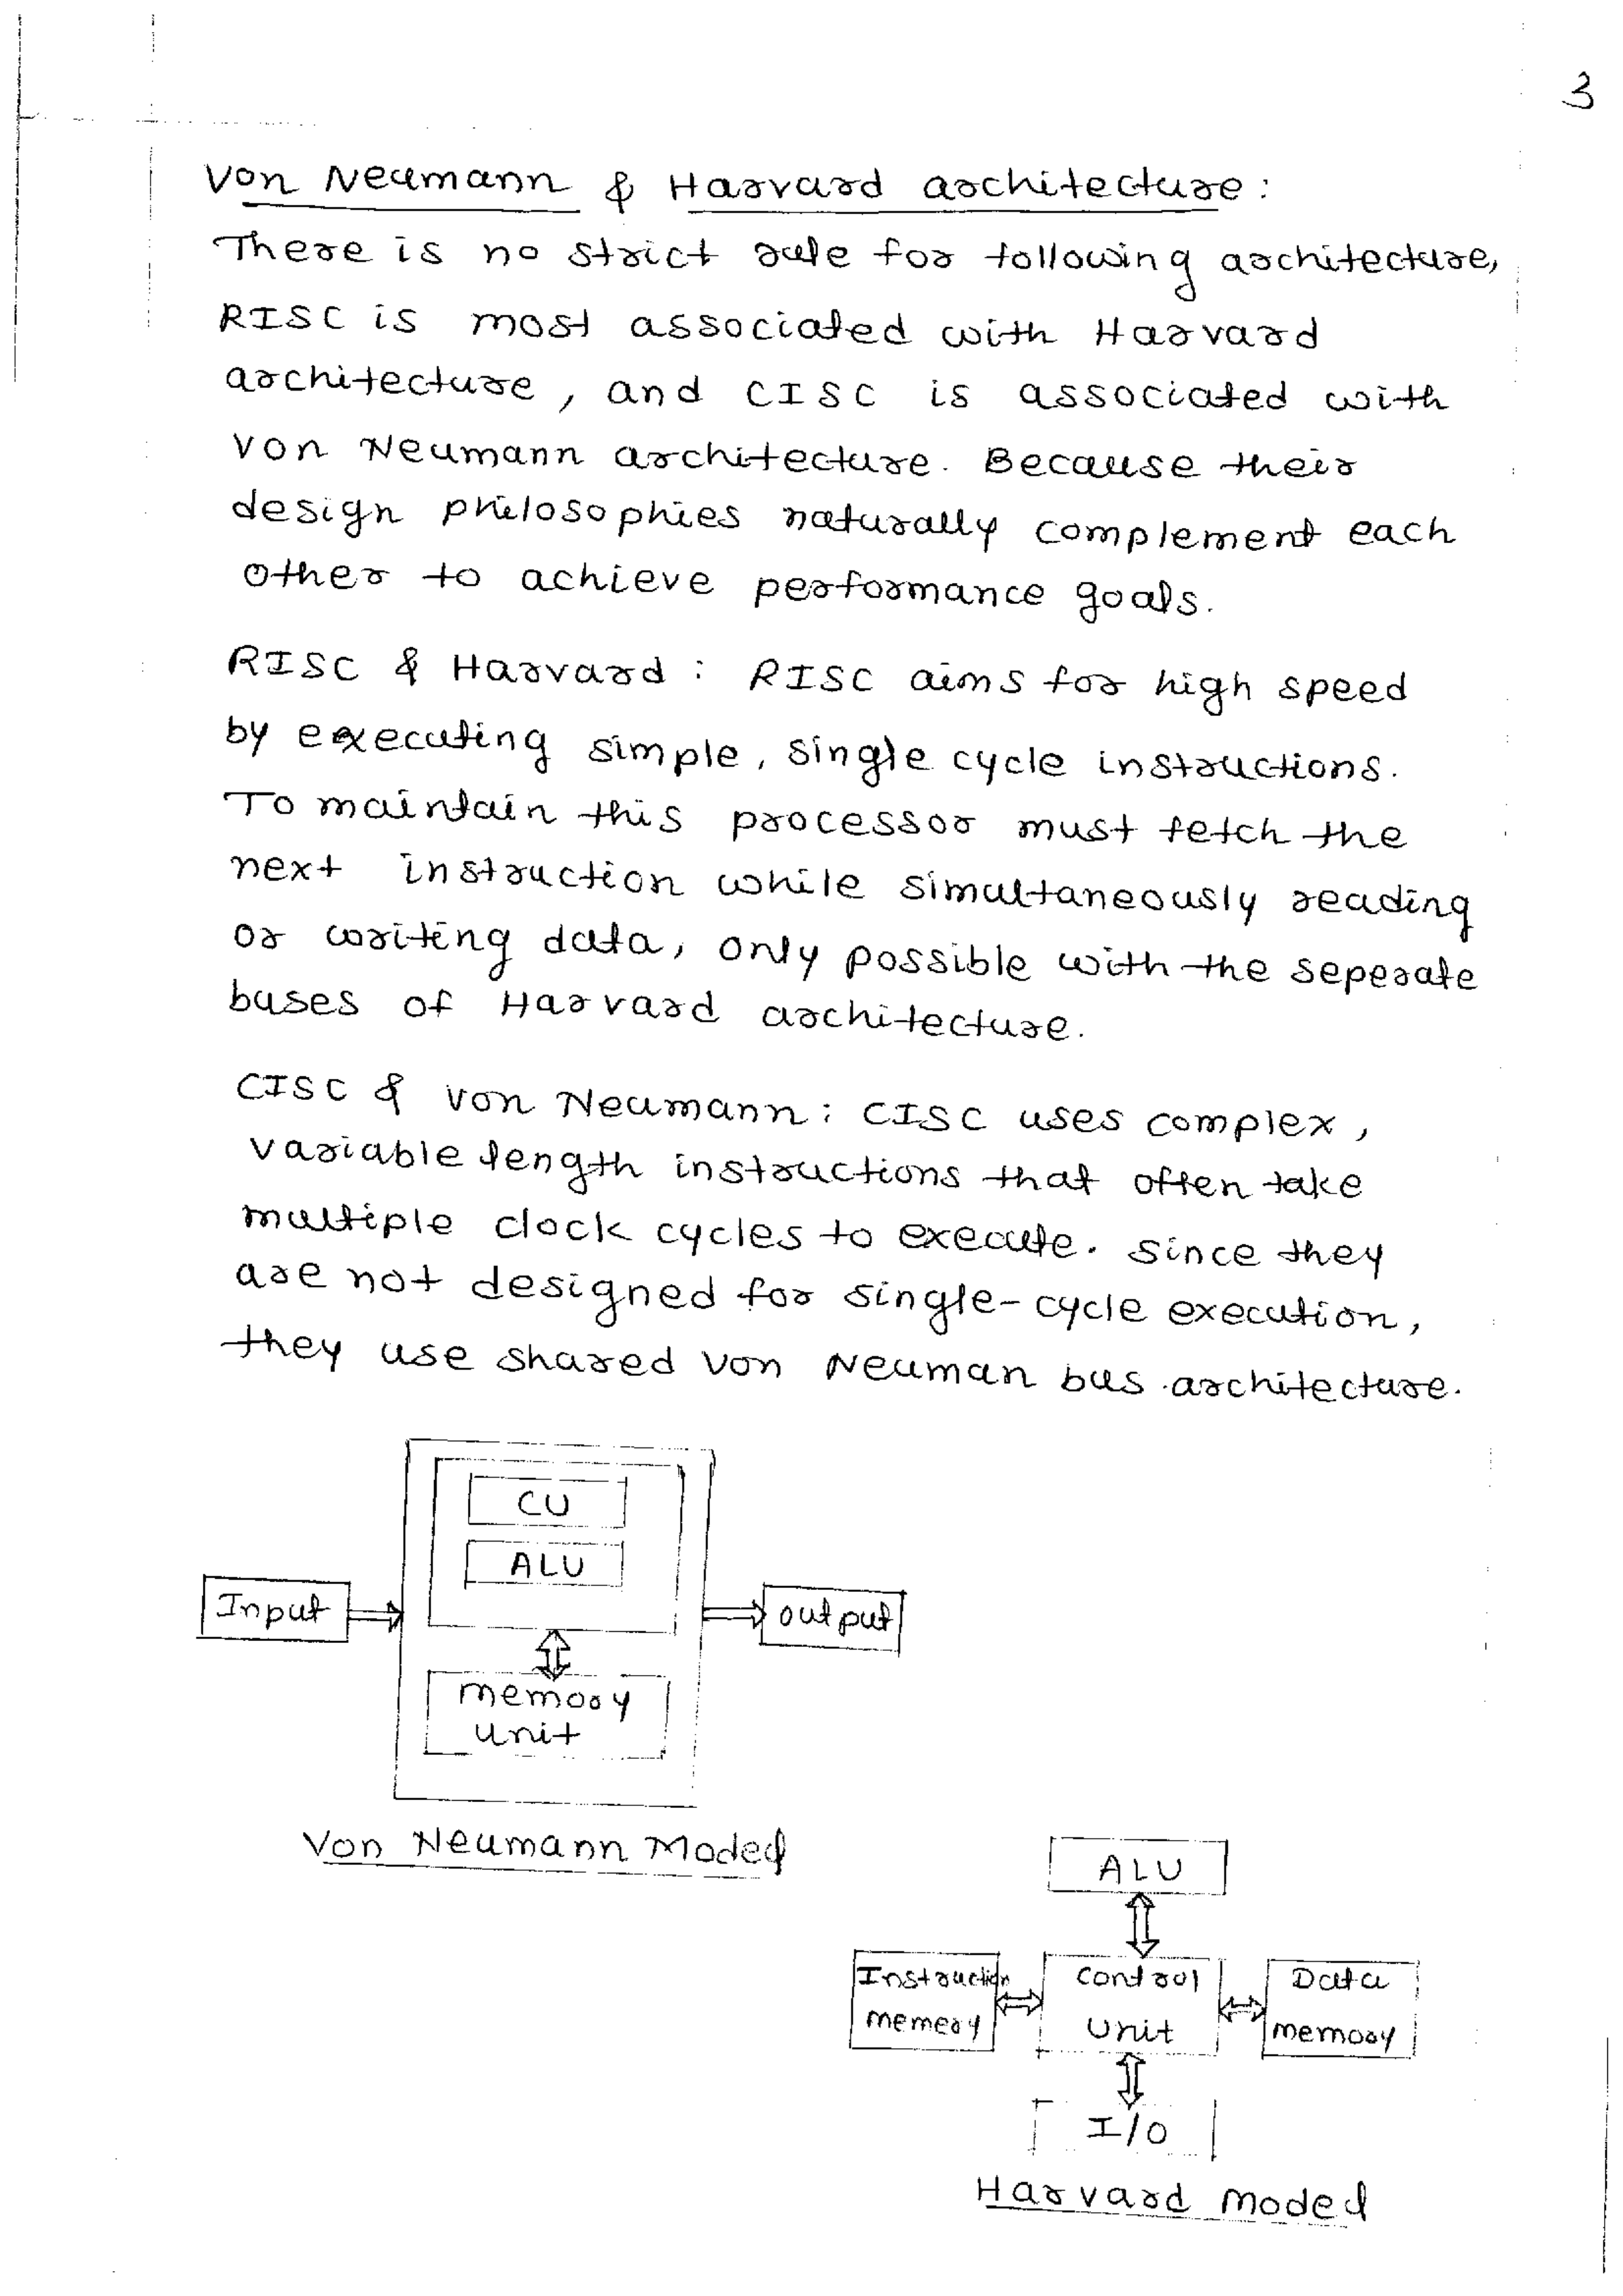 3
Von Neumann & Harvard architecture:
There is no strict rule for following architecture,
RISC is most associated with Harvard
architecture, and CISC is associated with
Von Neumann architecture. Because their
design philosophies naturally complement each
other to achieve performance goals.
RISC & Harvard: RISC aims for high speed
by executing simple, single cycle instructions.
To maintain this processor must fetch the
next instruction while simultaneously reading
or writing data, only possible with the seperate
buses of Harvard architecture.
CISC & Von Neumann: CISC uses complex,
variable length instructions that often take
multiple clock cycles to execute. Since they
are not designed for single-cycle execution,
they use shared Von Neuman bus architecture.
CU
ALU
Input
output
memory
unit
Von Neumann Model
ALU
Instruction
memory
control
unit
Data
memory
I/O
Harvard model